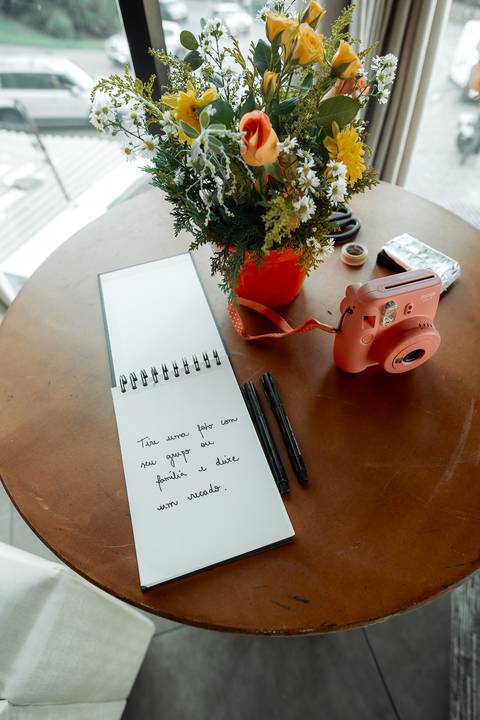 Tire uma foto com
seu grupo ou
família e deixe
um recado.